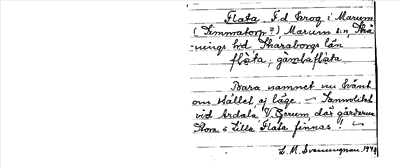 Flata, F.d. krog i Marum
(Simmatorp?) Marum s:n, Skå-
nings hd, Skaraborgs län
flàta, gàmbaflàta
Bara namnet nu känt
om stället, ej läge. – Sannolikt
vid Ardala V. Gerum, där gårdarna
Stora o Lilla Flata finnas!
L. M. Svenungsson 1948